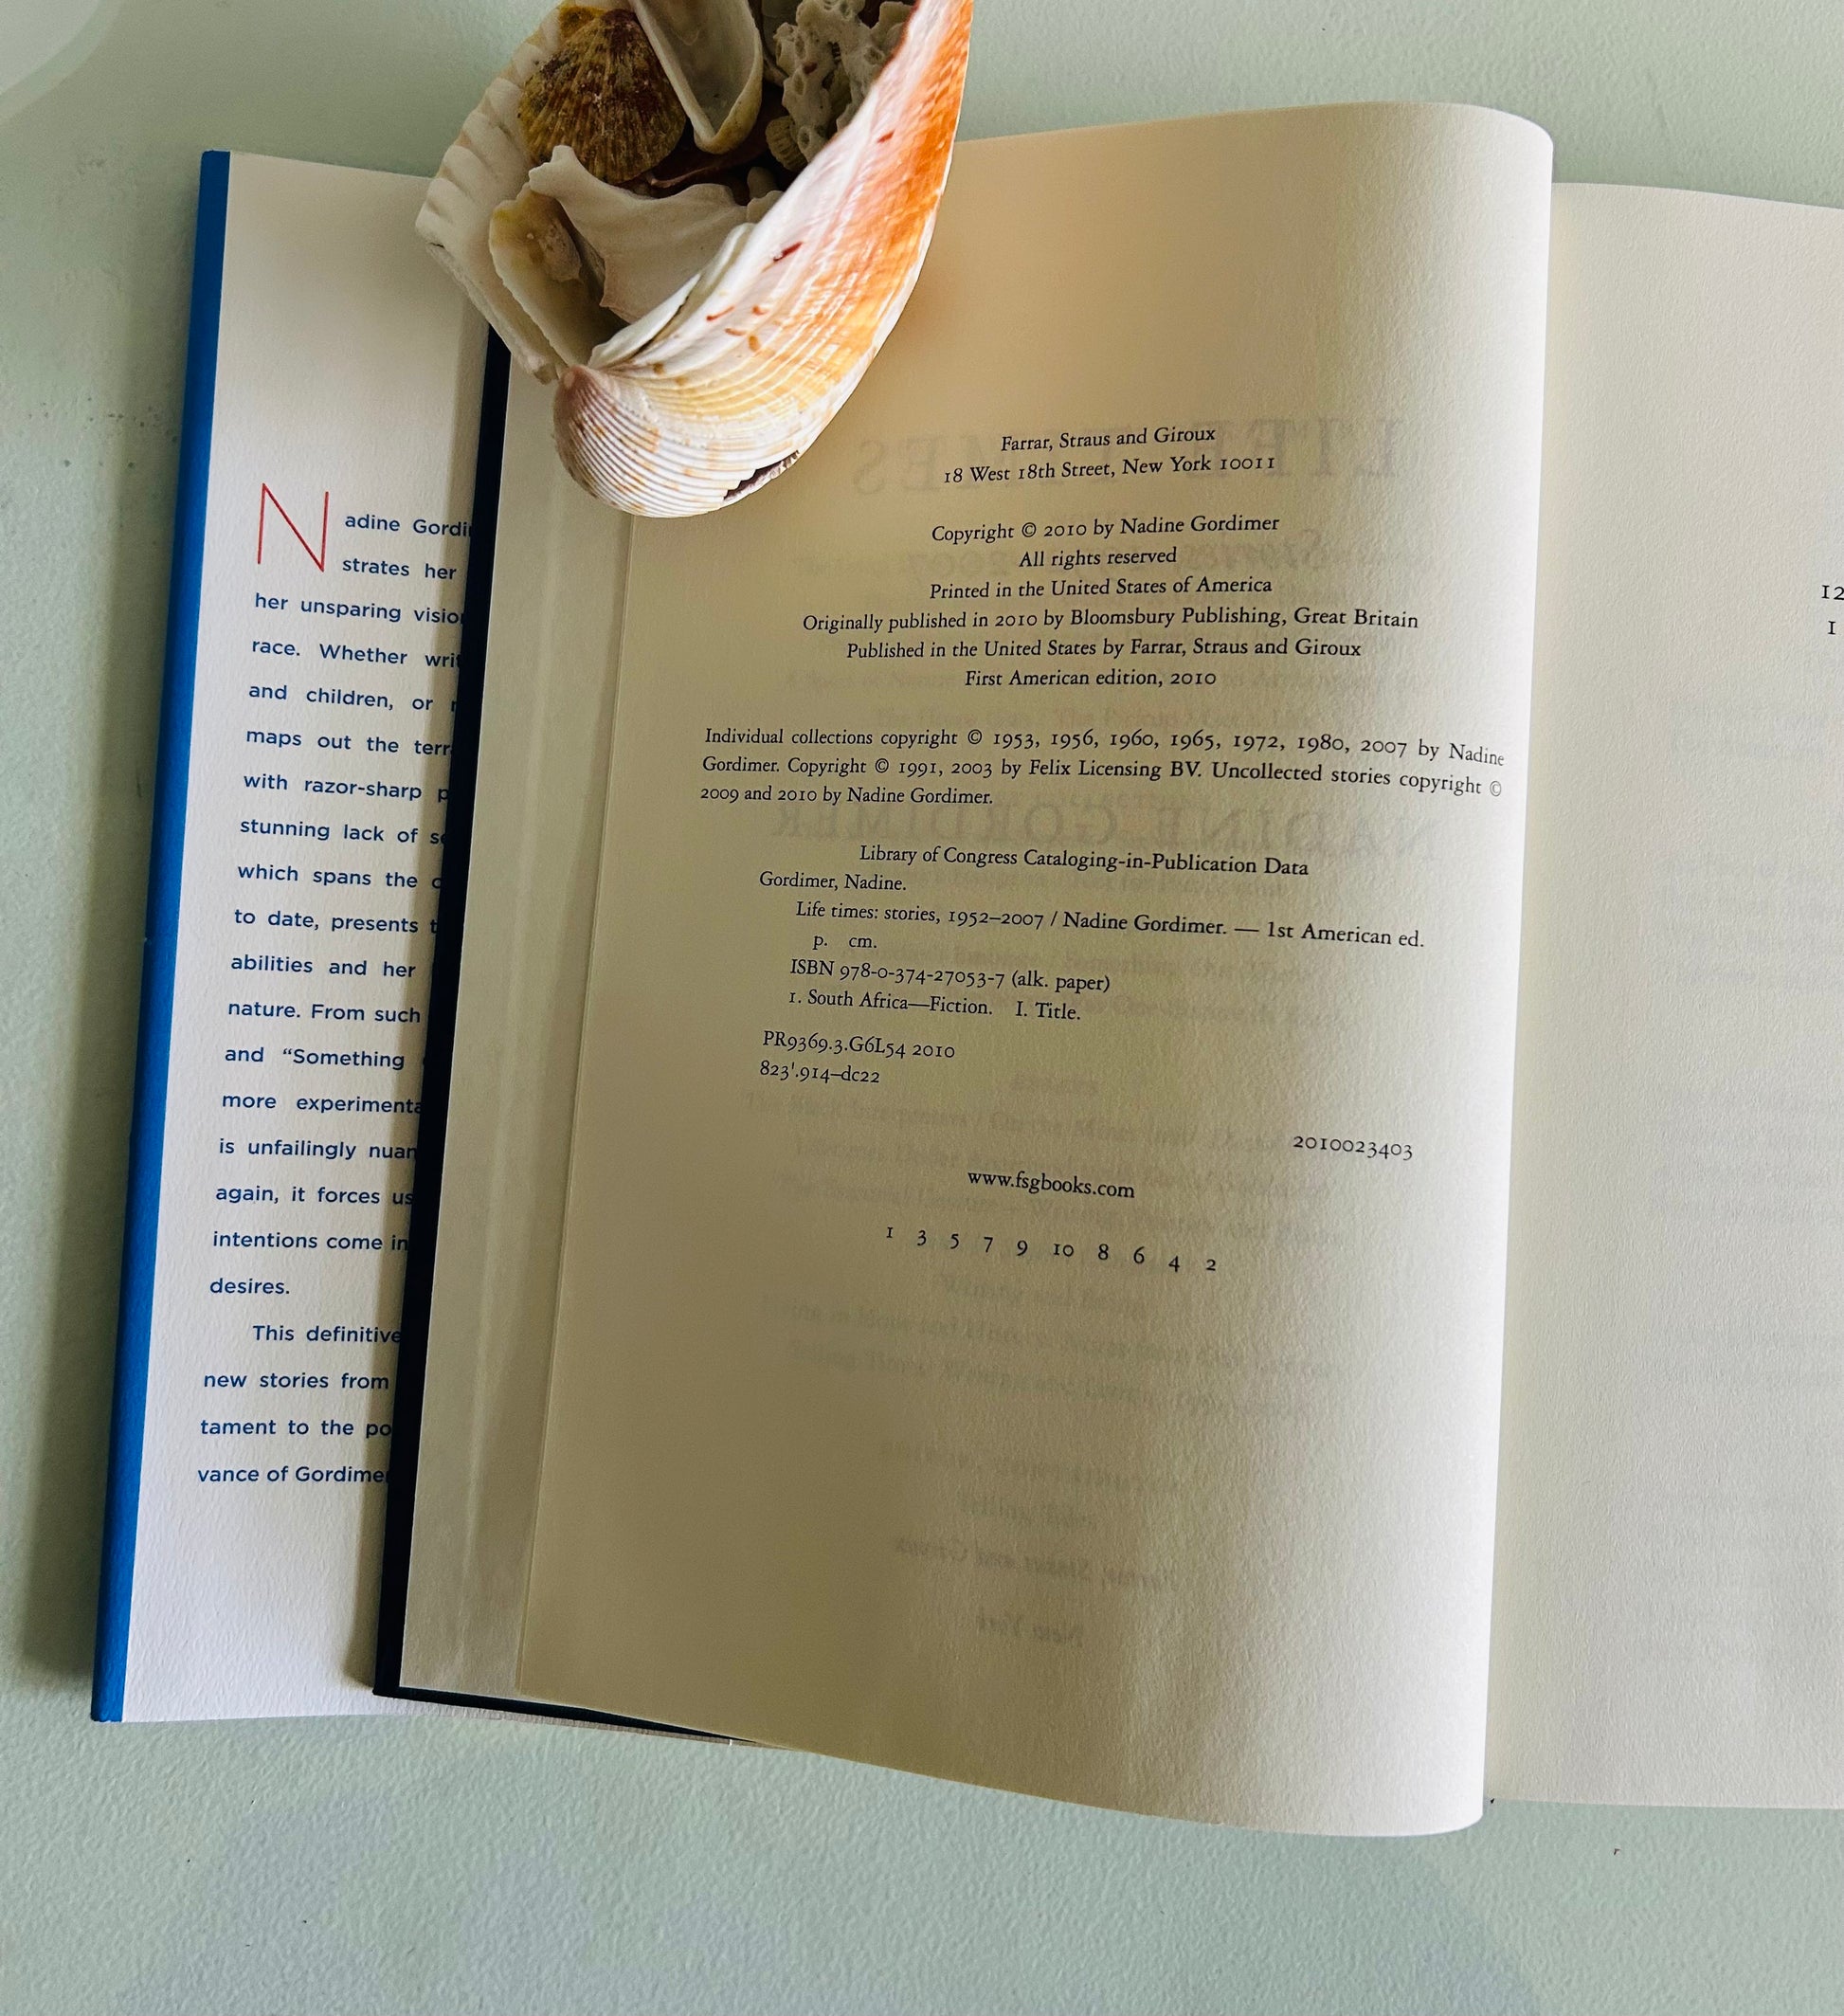 Nadine Gordi
strates her
her unsparing visio
race. Whether wri
and children, or
maps out the terr
with razor-sharp p
stunning lack of s
which spans the
to date, presents t
abilities and her
nature. From such
and “Something
more experimenta
is unfailingly nuan
again, it forces us
intentions come in
desires.
This definitive
new stories from
tament to the po
vance of Gordime
Farrar, Straus and Giroux
18 West 18th Street, New York 10011
Copyright © 2010 by Nadine Gordimer
All rights reserved
Printed in the United States of America
Originally published in 2010 by Bloomsbury Publishing, Great Britain
Published in the United States by Farrar, Straus and Giroux
First American edition, 2010
Individual collections copyright © 1953, 1956, 1960, 1965, 1972, 1980, 2007 by Nadine
Gordimer. Copyright © 1991, 2003 by Felix Licensing BV. Uncollected stories copyright ©
2009 and 2010 by Nadine Gordimer.
Library of Congress Cataloging-in-Publication Data
Gordimer, Nadine.
Life times: stories, 1952–2007 / Nadine Gordimer. — 1st American ed.
p. cm.
ISBN 978-0-374-27053-7 (alk. paper)
1. South Africa—Fiction. I. Title.
PR9369.3.G6L54 2010
823'.914–dc22
2010023403
www.fsgbooks.com
1 3 5 7 9 10 8 6 4 2
12
1